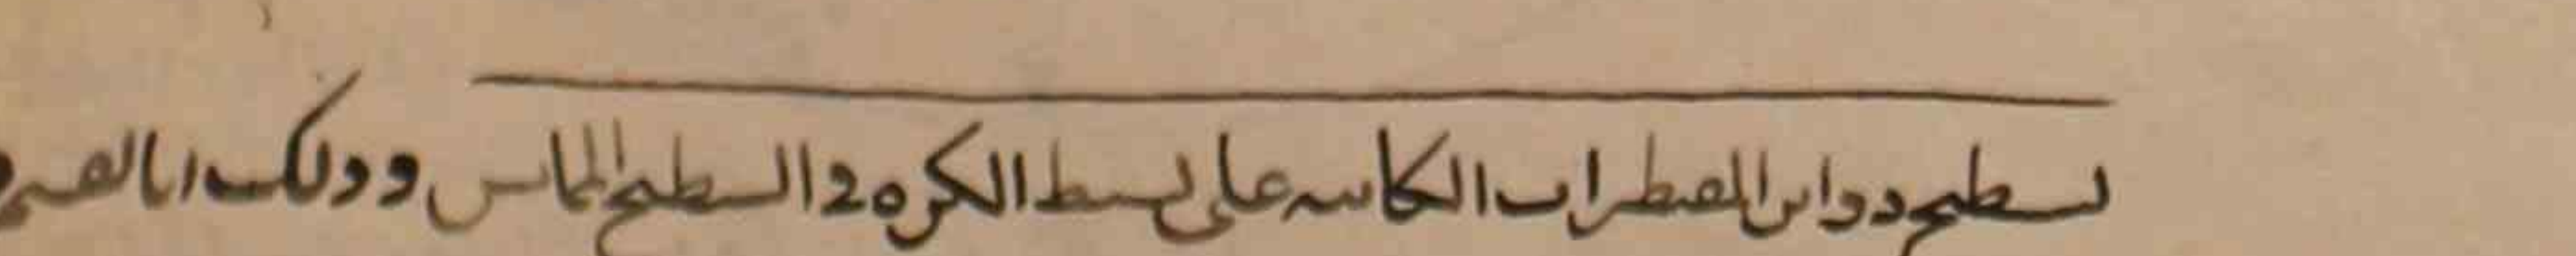 تسطيح دوائر المقنطرات الكائنه على بسيط الكره في السطح المماس وذلك انا لقسم